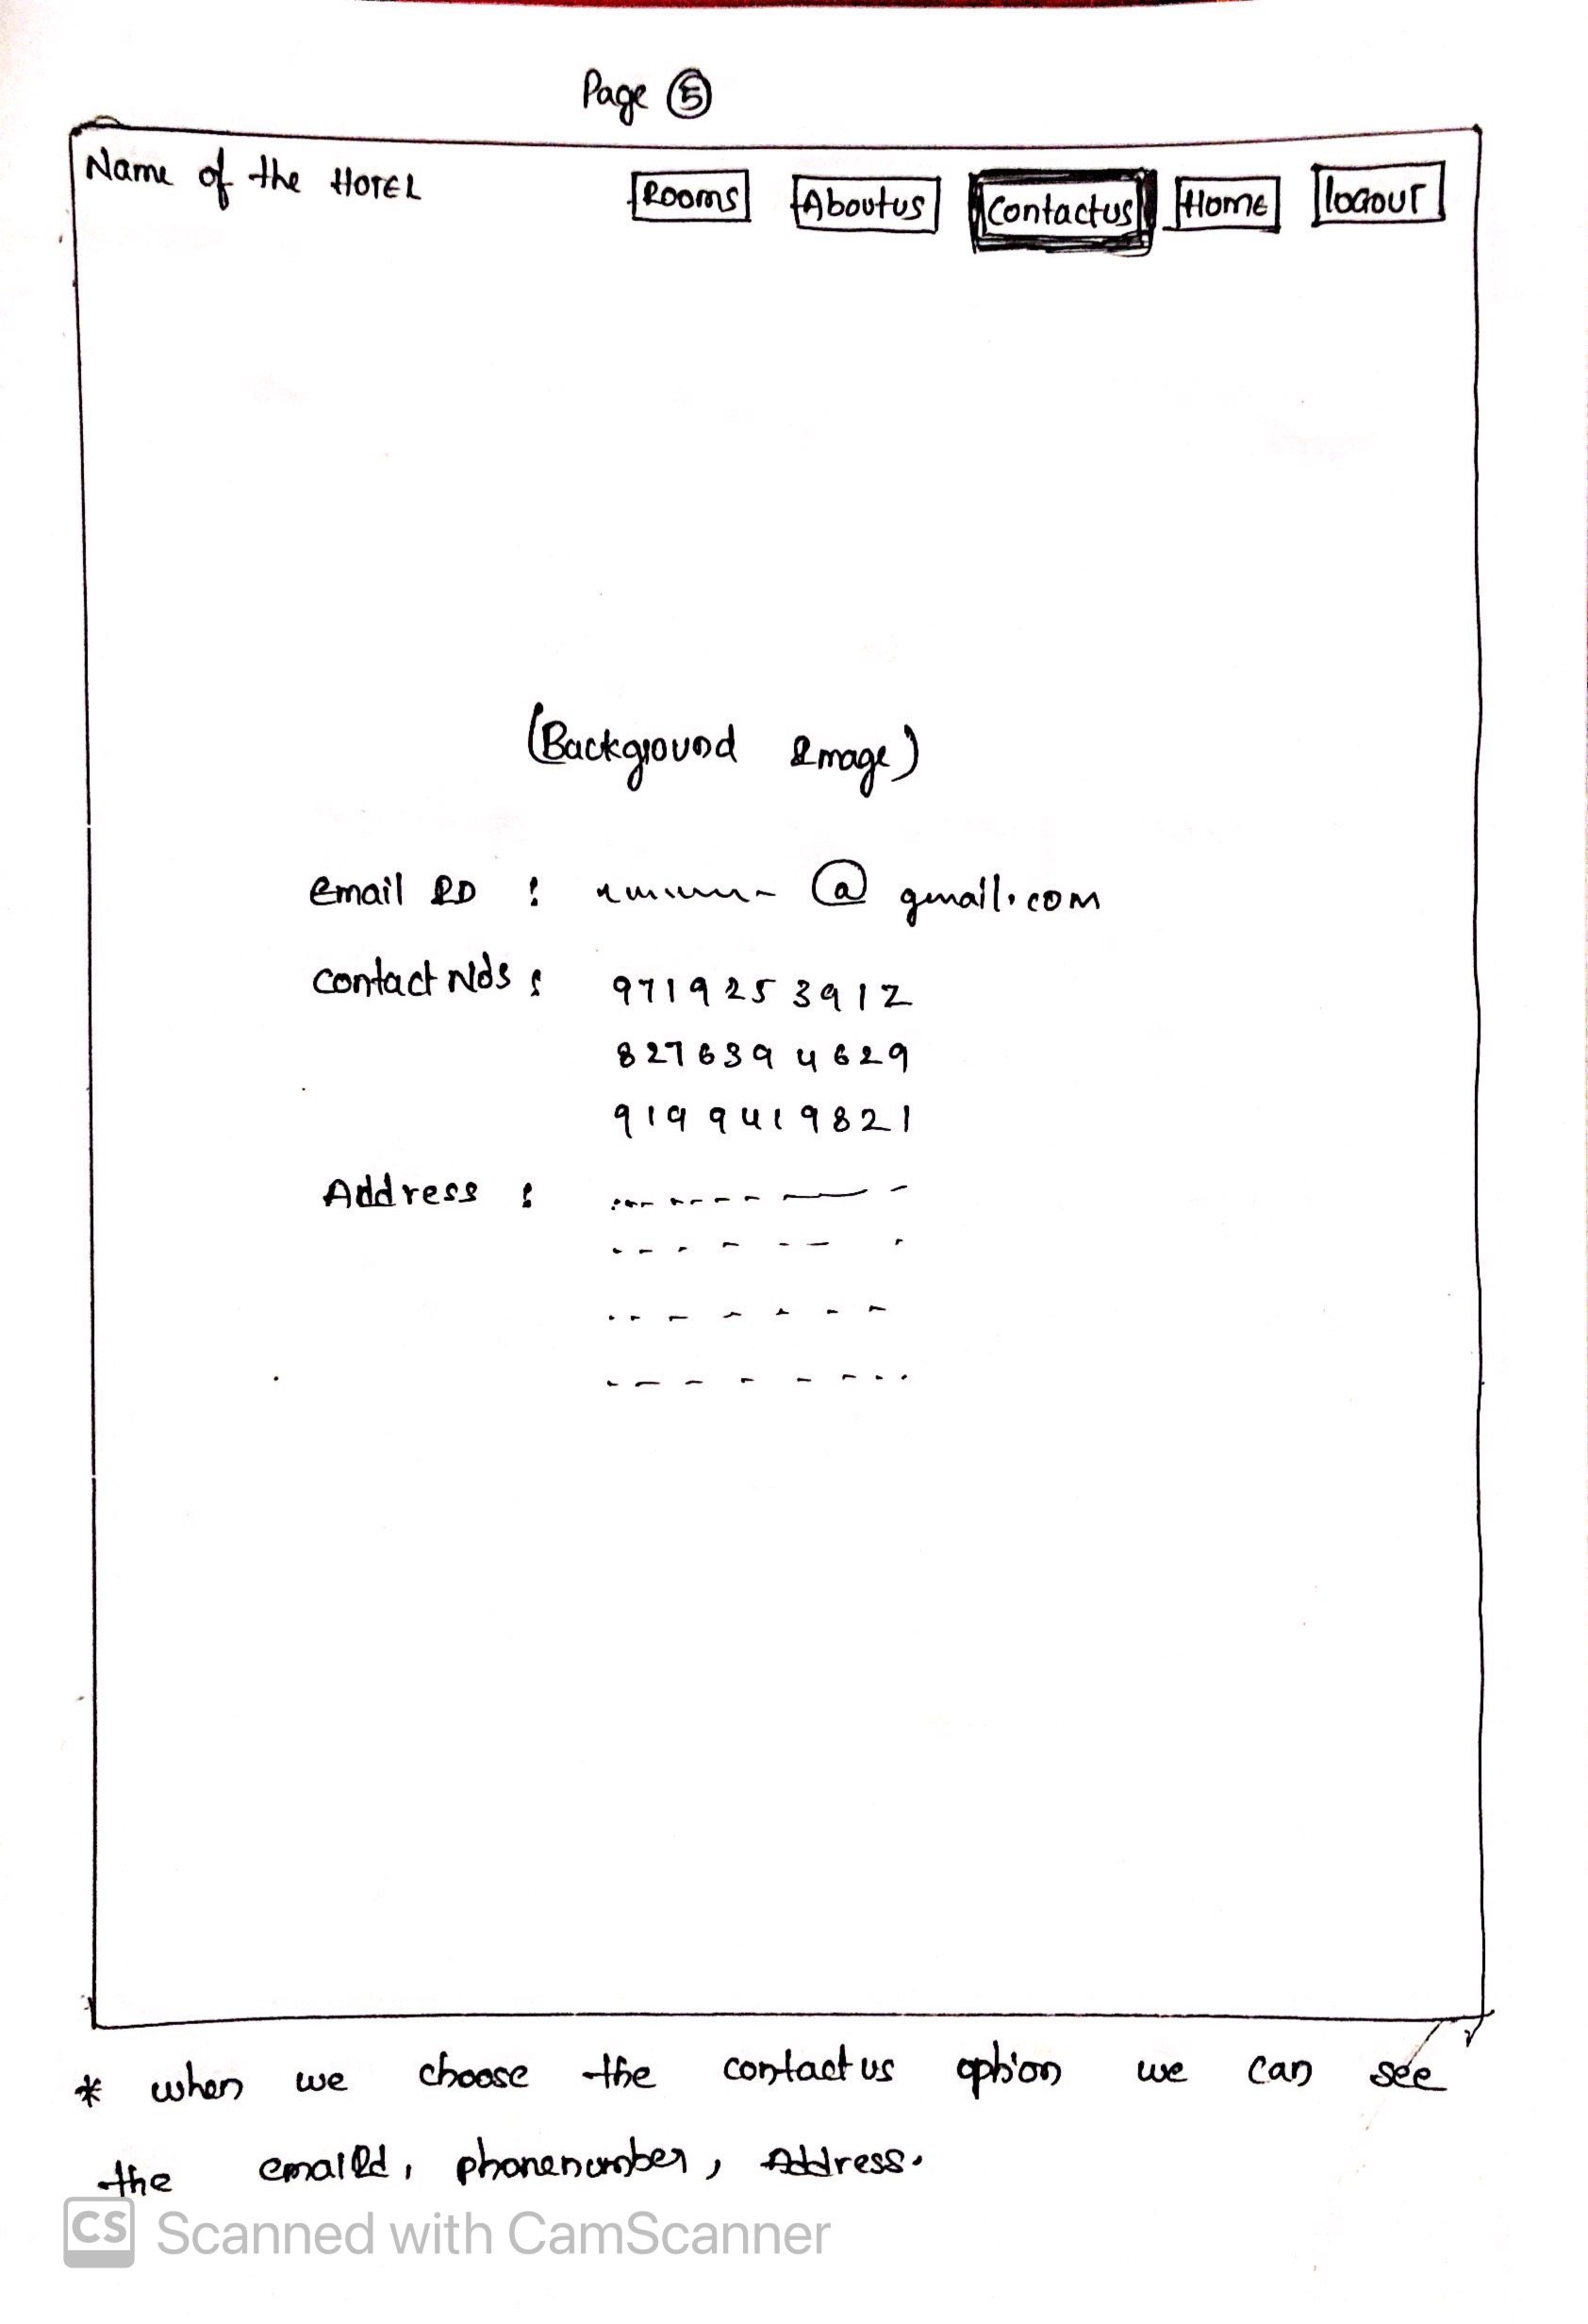 Page 5
Name of the HOTEL Rooms Aboutus Contactus Home logout
(Background Image)
email ID : @ gmail.com
contact Nos : 9719253912
8276394629
9199419821
Address :
* when we choose the contactus option we can see
the emailId, phonenumber, Address.
CS Scanned with CamScanner